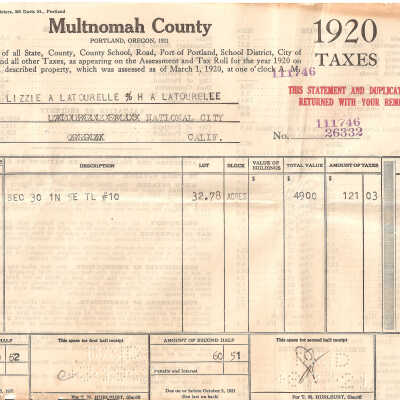 Multnomah County
PORTLAND, OREGON, 1921
1920
TAXES
of all State, County, County School, Road, Port of Portland, School District, City of
nd all other Taxes, as appearing on the Assessment and Tax Roll for the year 1920 on
described property, which was assessed as of March 1, 1920, at one o'clock A. M.
111746
THIS STATEMENT AND DUPLICAT
RETURNED WITH YOUR REM
LIZZIE A LATOURELLE % H A LATOURELLE
NATIONAL CITY
CALIF.
111746
No. 26332
DESCRIPTION LOT BLOCK VALUE OF BUILDINGS TOTAL VALUE AMOUNT OF TAXES
$ $ $
SEC 30 1N 5E TL #10 32.78 ACRES 4900 121 03
This space for first half receipt
AMOUNT OF SECOND HALF
This space for second half receipt
52
60 51
Penalty and Interest
Due on or before October 5, 1921
For T. M. HURLBURT, Sheriff
For T. M. HURLBURT, Sheriff